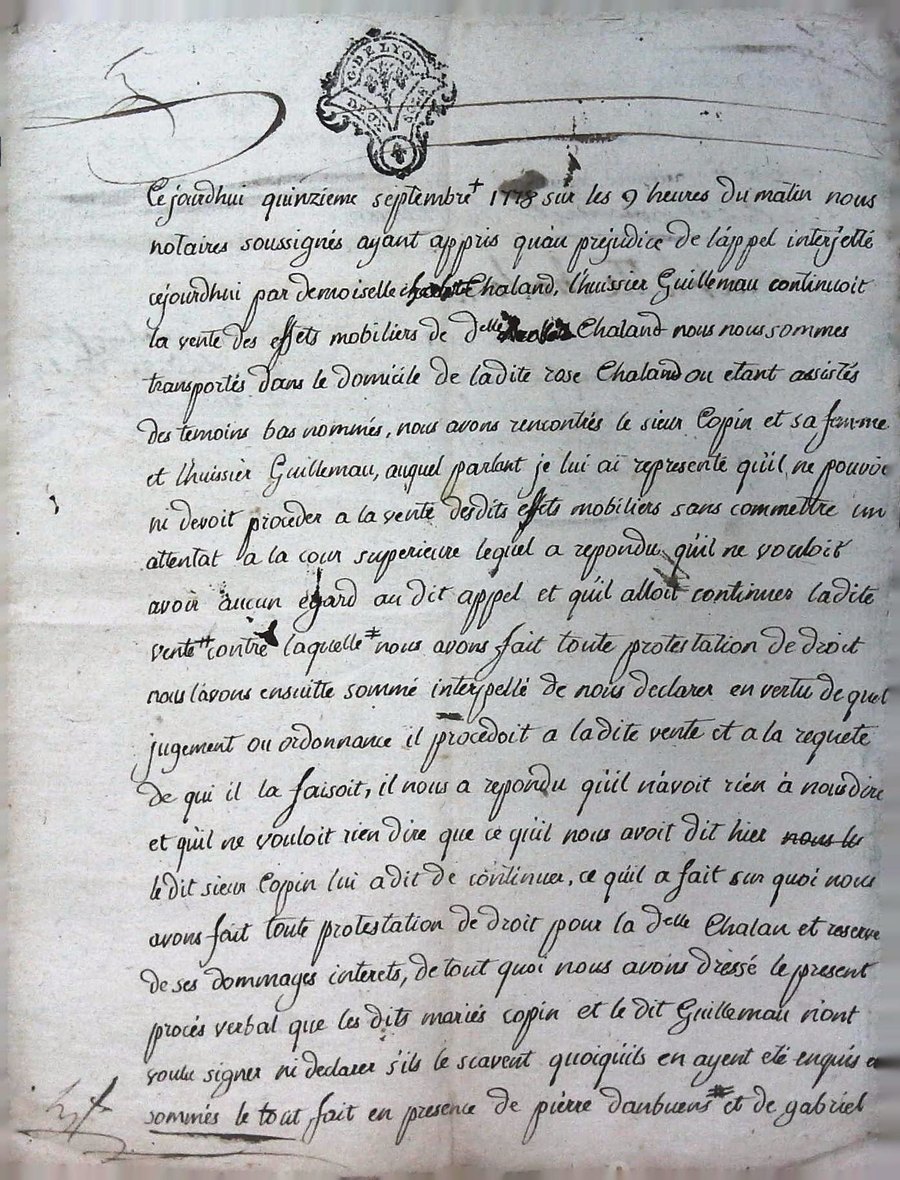 G. DE LYON
4
Cejourdhui quinzieme septembre 1778 sur les 9 heures du matin nous
notaires soussignés ayant appris qu'au préjudice de l'appel interjetté
cejourdhui par demoiselle Chaland, l'huissier Guillemau continuoit
la vente des effets mobiliers de delle Chaland nous nous sommes
transportés dans le domicile de ladite rose Chaland ou etant assistés
des temoins bas nommés, nous avons rencontrés le sieur Copin et sa femme
et l'huissier Guillemau, auquel parlant je lui ai representé qu'il ne pouvoi
ni devoit proceder a la vente desdits effets mobiliers sans commettre un
attentat a la cour superieure lequel a repondu qu'il ne vouloit
avoir aucun egard au dit appel et qu'il alloit continuer ladite
vente contre laquelle nous avons fait toute protestation de droit
nous l'avons ensuitte sommé interpellé de nous declarer en vertu de quel
jugement ou ordonnance il procedoit a ladite vente et a la requete
de qui il la faisoit, il nous a repondu qu'il n'avoit rien à nous dire
et qu'il ne vouloit rien dire que ce qu'il nous avoit dit hier nous le
le dit sieur Copin lui a dit de continuer, ce qu'il a fait sur quoi nous
avons fait toute protestation de droit pour la delle Chalan et reserve
de ses dommages interets, de tout quoi nous avons dressé le present
procés verbal que les dits mariés copin et le dit Guillemau n'ont
voulu signer ni declarer s'ils le scavent quoiqu'ils en ayent eté enquis e
sommés le tout fait en presence de pierre danbuens et de gabriel